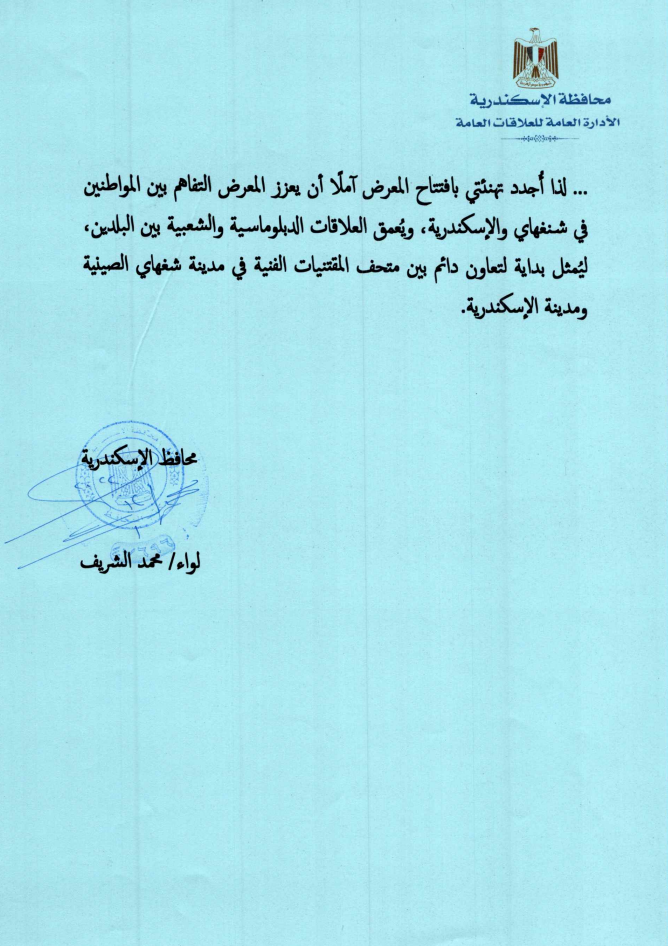 محافظة الإسكندرية
الأدارة العامة للعلاقات العامة
... لذا أُجدد تهنئتي بافتتاح المعرض آملًا أن يعزز المعرض التفاهم بين المواطنين
في شنغهاي والإسكندرية، ويُعمق العلاقات الدبلوماسية والشعبية بين البلدين،
ليُمثل بداية لتعاون دائم بين متحف المقتنيات الفنية في مدينة شغهاي الصينية
ومدينة الإسكندرية.
محافظ الإسكندرية
لواء/ محمد الشريف